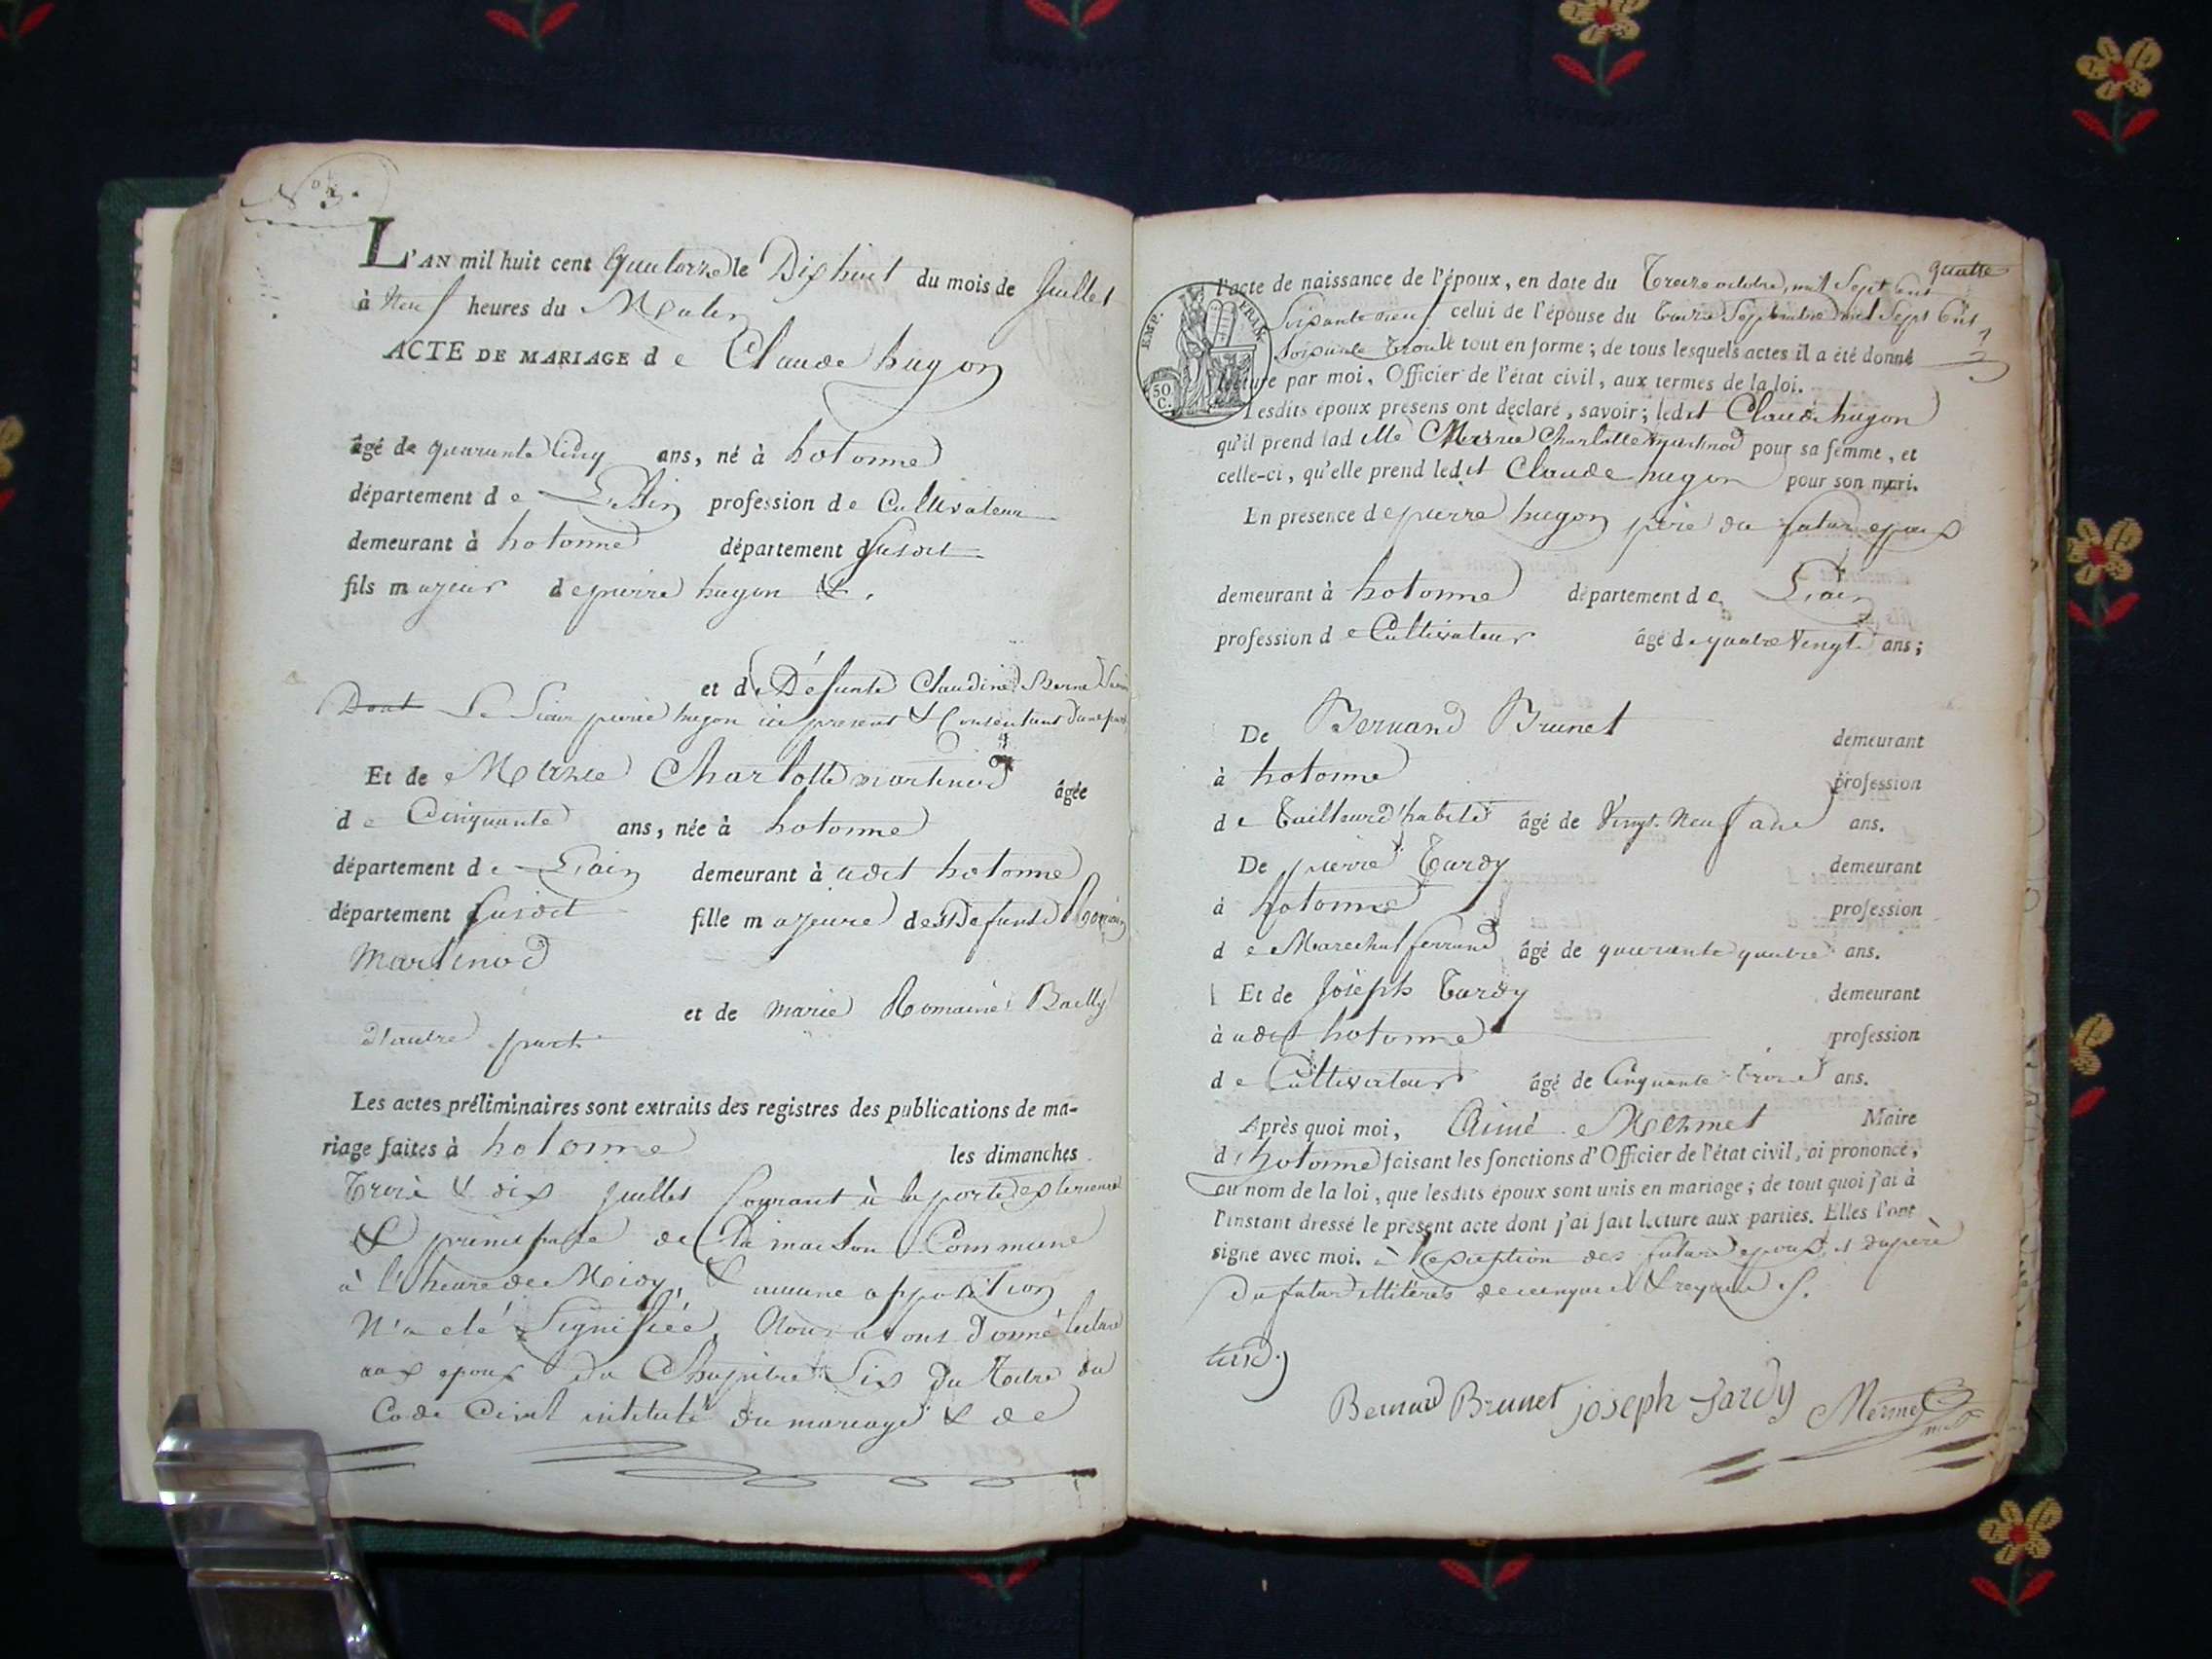 N.° 3.
L'AN mil huit cent quatorze le Dix huit du mois de Juillet
à Neuf heures du Matin
ACTE DE MARIAGE de Claude hugon
âgé de quarante Cinq ans, né à hotonne
département de L'Ain profession de Cultivateur
demeurant à hotonne département susdit
fils majeur de pierre hugon &.
et de Défunte Claudine
Dont Le Sieur pierre hugon ici present & Consentant d'une part
Et de Marie Charlotte martinod âgée
de Cinquante ans, née à hotonne
département de L'ain demeurant à udit hotonne
département susdit fille majeure des Defunts Romain
Martinod
et de marie Romaine Bailly
d'autre part
Les actes préliminaires sont extraits des registres des publications de ma-
riage faites à hotonne les dimanches
Trois & dix juillet Courant à la porte exterieure
& principale de la maison Commune
à l'heure de Midy, & aucune opposition
N'a été Signifiée, Nous avons donné lecture
aux epoux du Chapitre Six du titre du
Code Civil intitulé du mariage & de
quatre
l'acte de naissance de l'époux, en date du Treize octobre mil Sept Cent
Soixante neuf celui de l'épouse du treize Septembre mil Sept Cent
Soixante tout en forme; de tous lesquels actes il a été donné
lecture par moi, Officier de l'état civil, aux termes de la loi.
Lesdits époux présens ont déclaré, savoir; ledit Claude hugon
qu'il prend lad elle Marie Charlotte martinod pour sa femme, et
celle-ci, qu'elle prend ledit Claude hugon pour son mari.
En présence de pierre hugon père du futur epoux
demeurant à hotonne département de L'ain
profession de Cultivateur âgé de quatre Vingt ans;
De Bernard Brunet demeurant
à hotonne profession
de Tailleur d'habits âgé de Vingt Neuf ans ans.
De pierre Tardy demeurant
à hotonne profession
de Marechal ferrand âgé de quarante quatre ans.
Et de Joseph Tardy demeurant
à udit hotonne profession
de Cultivateur âgé de Cinquante trois ans.
Après quoi moi, Aimé Mermet Maire
d' hotonne faisant les fonctions d'Officier de l'état civil, ai prononcé,
au nom de la loi, que lesdits époux sont unis en mariage; de tout quoi j'ai à
l'instant dressé le présent acte dont j'ai fait lecture aux parties. Elles l'ont
signé avec moi. à l'exception des futurs epoux et du père
du futur illiteres de ce enquis & requis
tardy
Bernard Brunet joseph tardy Mermet
EMP. FRAN.
50 C.